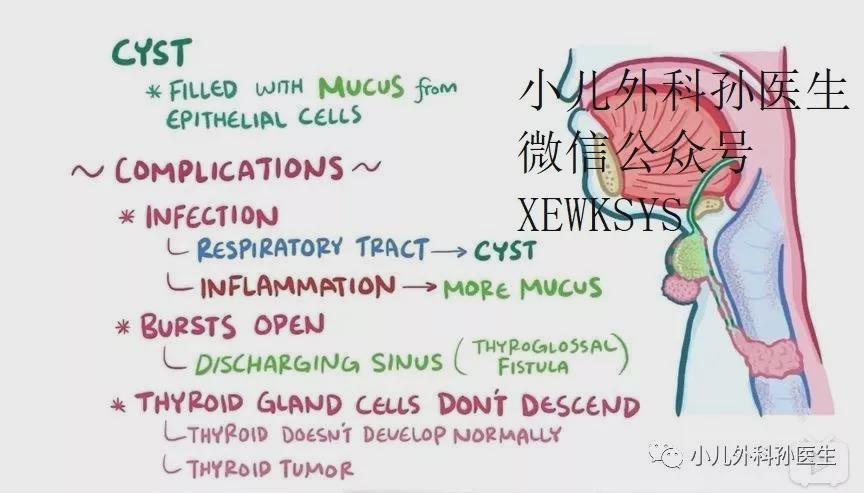 CYST
* FILLED WITH MUCUS from
EPITHELIAL CELLS
~ COMPLICATIONS ~
* INFECTION
RESPIRATORY TRACT → CYST
INFLAMMATION → MORE MUCUS
* BURSTS OPEN
DISCHARGING SINUS (THYROGLOSSAL
FISTULA)
* THYROID GLAND CELLS DON'T DESCEND
THYROID DOESN'T DEVELOP NORMALLY
THYROID TUMOR
小儿外科孙医生
微信公众号
XEWKSYS
小儿外科孙医生